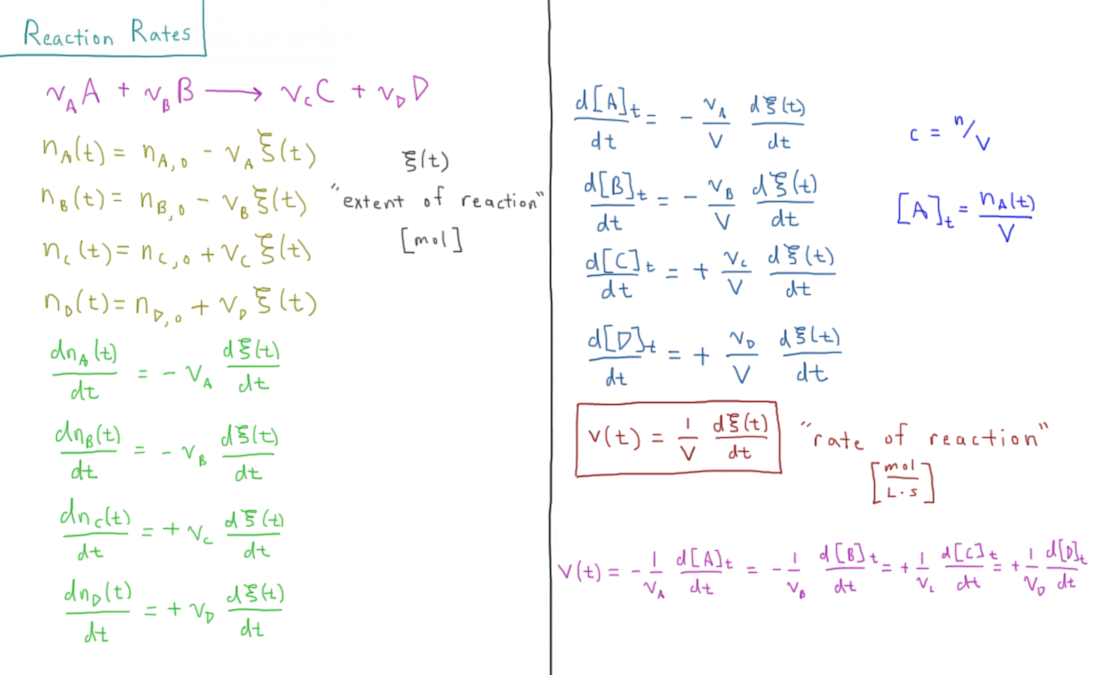 Reaction Rates
ν_A A + ν_B B ⟶ ν_C C + ν_D D
n_A(t) = n_A,0 - ν_A ξ(t)
n_B(t) = n_B,0 - ν_B ξ(t)
n_C(t) = n_C,0 + ν_C ξ(t)
n_D(t) = n_D,0 + ν_D ξ(t)
ξ(t)
"extent of reaction"
[mol]
dn_A(t)/dt = - ν_A dξ(t)/dt
dn_B(t)/dt = - ν_B dξ(t)/dt
dn_C(t)/dt = + ν_C dξ(t)/dt
dn_D(t)/dt = + ν_D dξ(t)/dt
d[A]_t/dt = - ν_A/V dξ(t)/dt
d[B]_t/dt = - ν_B/V dξ(t)/dt
d[C]_t/dt = + ν_C/V dξ(t)/dt
d[D]_t/dt = + ν_D/V dξ(t)/dt
c = n/V
[A]_t = n_A(t)/V
v(t) = 1/V dξ(t)/dt
"rate of reaction"
[mol/L·s]
v(t) = - 1/ν_A d[A]_t/dt = - 1/ν_B d[B]_t/dt = + 1/ν_C d[C]_t/dt = + 1/ν_D d[D]_t/dt